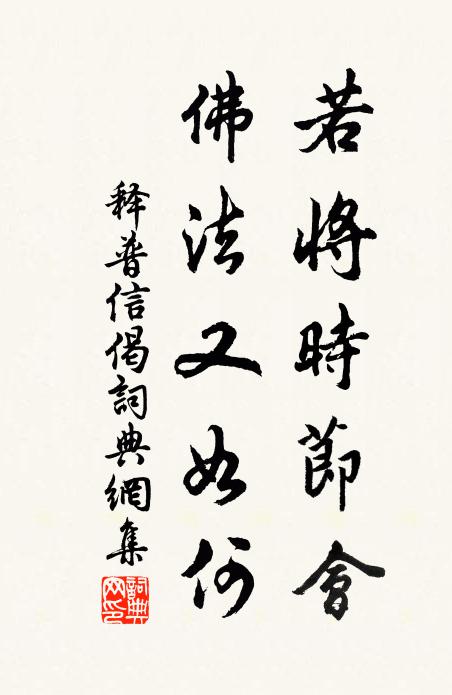 若將時節會
佛法又如何
释普信偈詞典網集
詞典网印